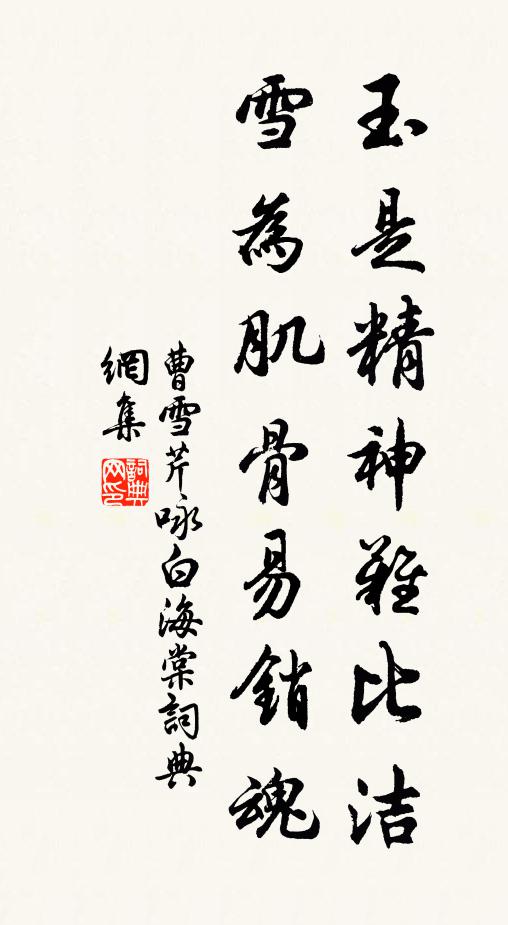 玉是精神難比洁
雪為肌骨易銷魂
曹雪芹咏白海棠詞典
網集
詞典网印